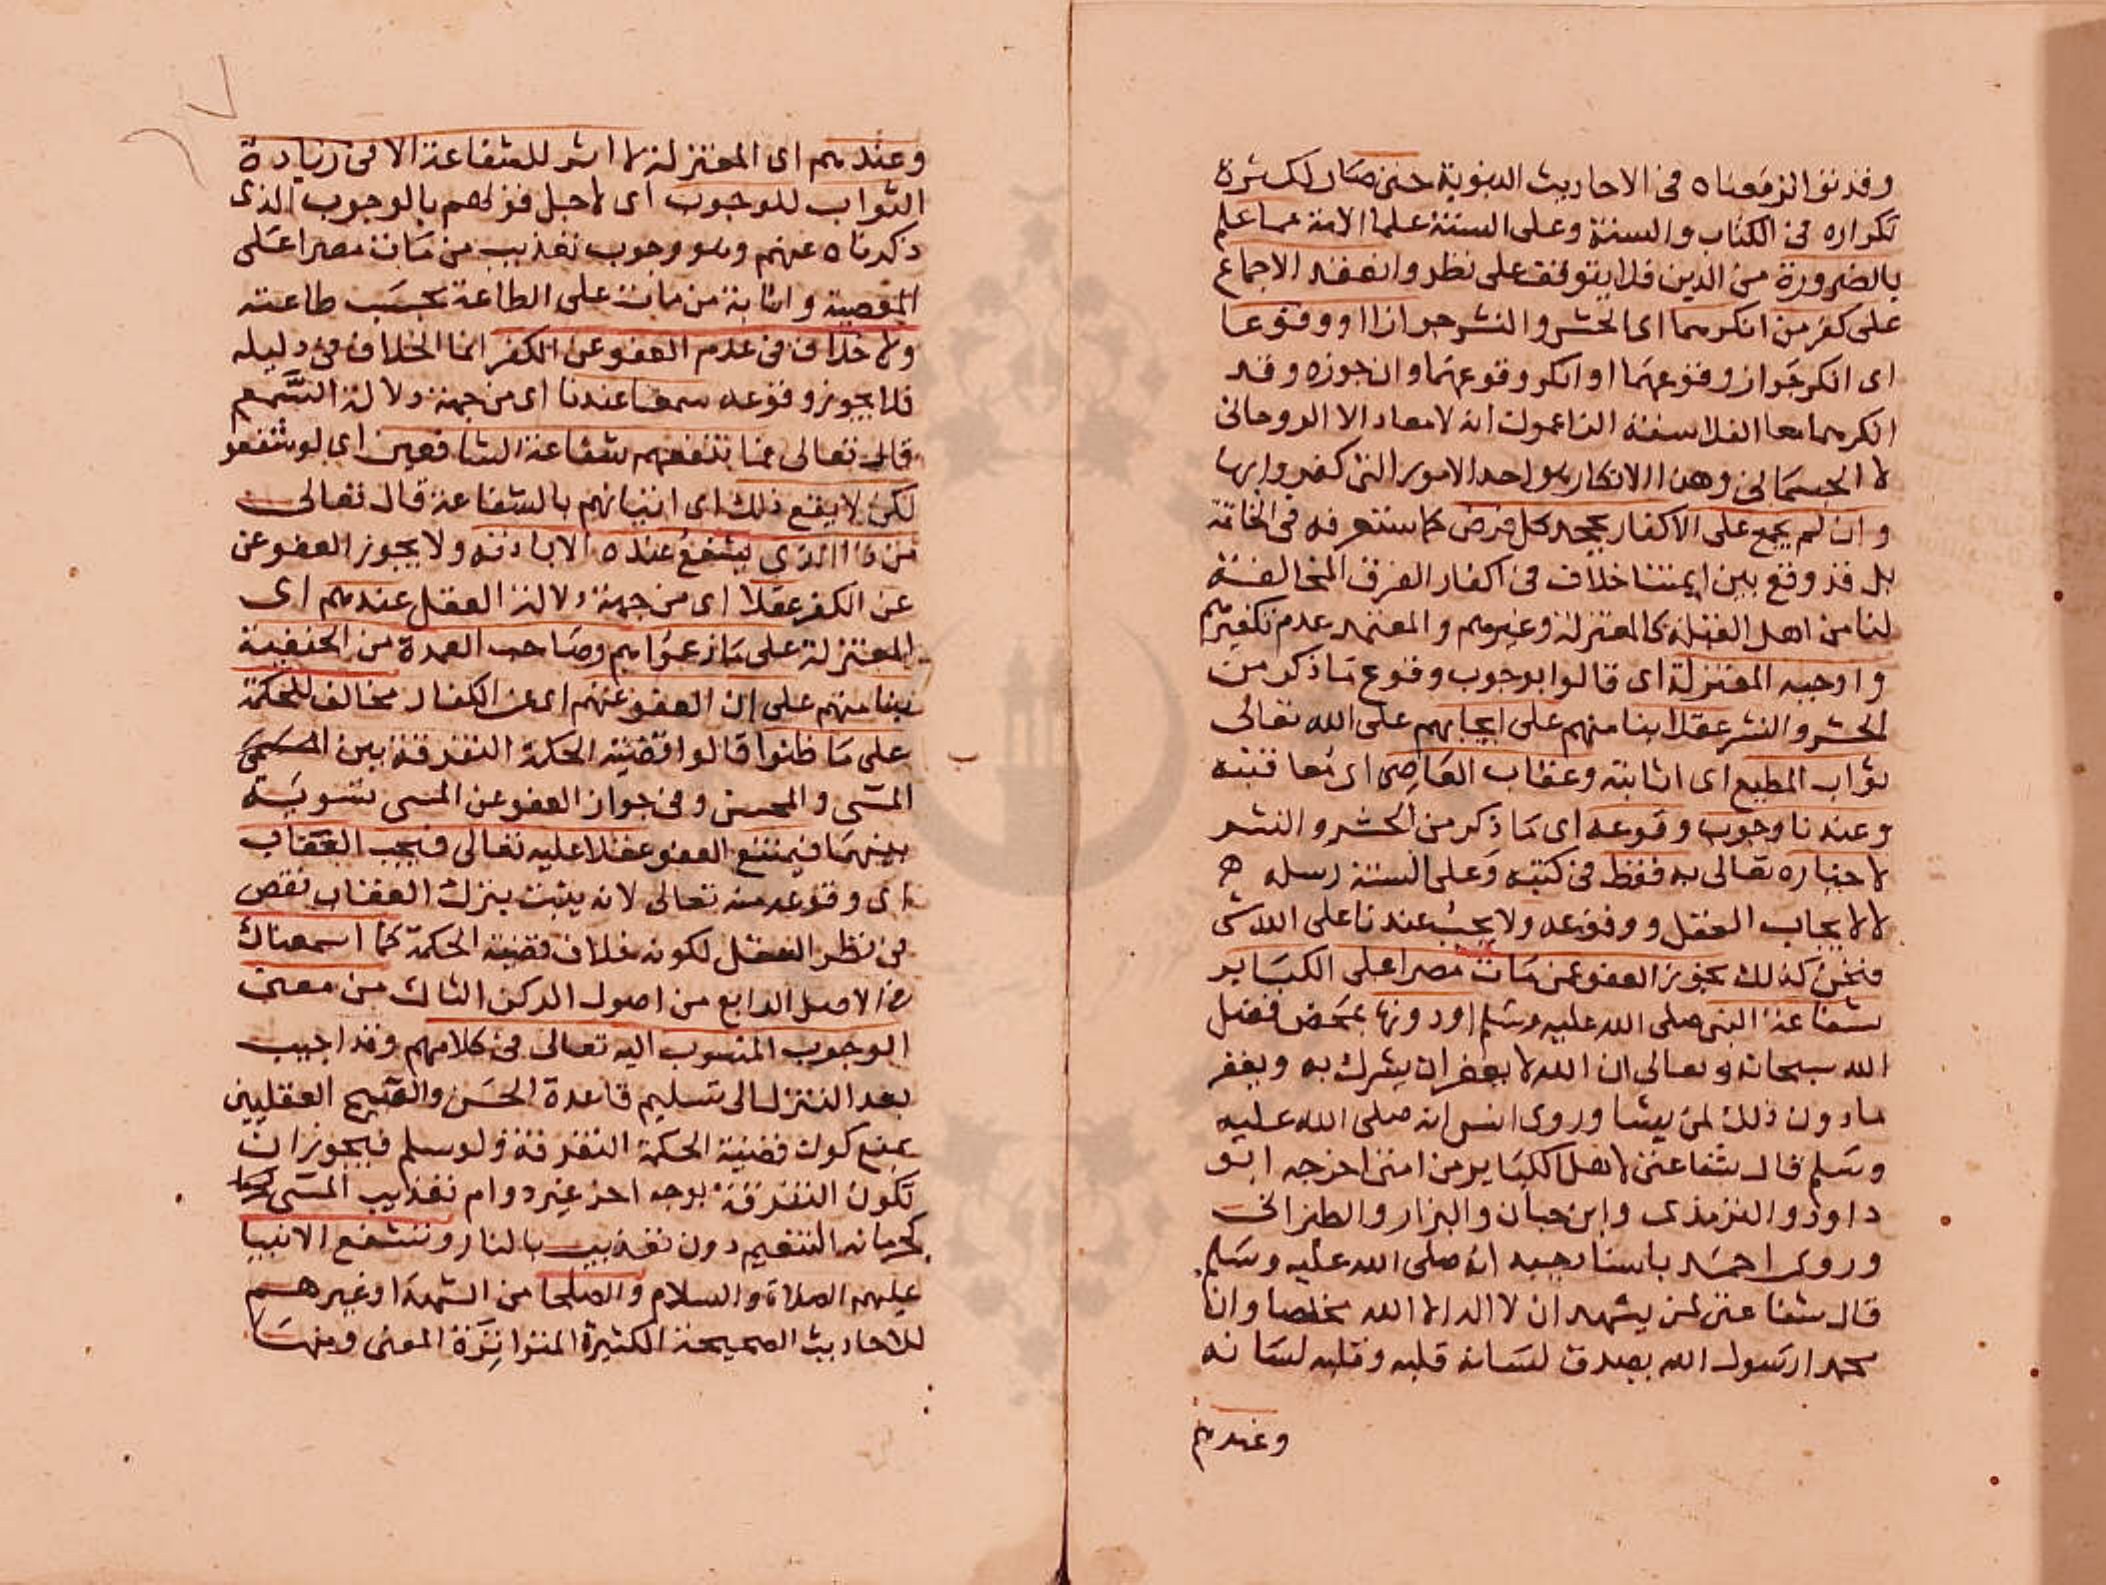 وقد تواتر معناه في الاحاديث النبوية حتى صار لكثرة
تكراره في الكتاب والسنة وعلى السنة علما الامة مما علم
بالضرورة من الدين فلا يتوقف على نظر وانعقد الاجماع
على كفر من انكرهما اى الحشر والنشر جوازا او وقوعا
اى انكر جواز وقوعهما او انكر وقوعهما وان جوزه وقد
انكرهما معا الفلاسفة الزاعمون ان لا معاد الا الروحانى
لا الجسمانى وهذا الانكار هو احد الامور التى كفروا بها
وان لم يجمع على الاكفار بجحد كل فرض كما ستعرفه في الخاتمة
بل قد وقع بين ايمتنا خلاف في اكفار الفرق المخالفة
لنا من اهل القبلة كالمعتزلة وغيرهم والمعتمد عدم تكفيرهم
واوجبه المعتزلة اى قالوا بوجوب وقوع ما ذكر من
الحشر والنشر عقلا بنا منهم على ايجابهم على الله تعالى
ثواب المطيع اى اثابته وعقاب العاصى اى معاقبته
وعندنا وجوب وقوعه اى ما ذكر من الحشر والنشر
لاخباره تعالى به فقط في كتبه وعلى السنة رسله
لا لايجاب العقل ووقوعه ولا يجب عندنا على الله شى
فنحن كذلك نجوز العفو عن مات مصرا على الكباير
بشفاعة النبى صلى الله عليه وسلم او دونها بمحض فضل
الله سبحانه وتعالى ان الله لا يغفر ان يشرك به ويغفر
ما دون ذلك لمن يشا وروى انس انه صلى الله عليه
وسلم قال شفاعتى لاهل الكباير من امتى اخرجه ابو
داود والترمذى وابن حبان والبزار والطبرانى
وروى احمد باسناد جيد انه صلى الله عليه وسلم
قال شفاعتى لمن يشهد ان لا اله الا الله مخلصا وان
محمدا رسول الله يصدق لسانه قلبه وقلبه لسانه
وعندهم
وعندهم اى المعتزلة لا اثر للشفاعة الا في زيادة
الثواب للوجوب اى لاجل قولهم بالوجوب الذى
ذكرناه عنهم وهو وجوب تعذيب من مات مصرا على
المعصية واثابة من مات على الطاعة بحسب طاعته
ولا خلاف في عدم العفو عن الكفر انما الخلاف في دليله
فلا يجوز وقوعه سمعا عندنا اى من جهة دلالة السمع
قال تعالى فما تنفعهم شفاعة الشافعين اى لو شفعو
لكن لا يقع ذلك اى اتيانهم بالشفاعة قال تعالى
من ذا الذى يشفع عنده الا باذنه ولا يجوز العفو عن
عن الكفر عقلا اى من جهة دلالة العقل عندهم اى
المعتزلة على ما زعموا وصاحب العمدة من الحنفية
بنا منهم على ان العفو عنهم اى عن الكفار مخالف للحكمة
على ما ظنوا قالوا قضية الحكمة التفرقة بين
المسى والمحسن وفي جواز العفو عن المسى تسوية
بينهما فيمتنع العفو عقلا عليه تعالى فيجب العقاب
اى وقوعه منه تعالى لانه يثبت بترك العقاب نقص
في نظر العقل لكونه خلاف قضية الحكمة كما اسمعناك
في الاصل الرابع من اصول الركن الثالث من معنى
الوجوب المنسوب اليه تعالى في كلامهم وقد اجيب
بعد التنزل الى تسليم قاعدة الحسن والقبيح العقليين
بمنع كون قضية الحكمة التفرقة ولو سلم فيجوز ان
تكون التفرقة بوجه اخر غير دوام تعذيب المسى
كحرمانه النعيم دون تعذيب بالنار وتشفع الانبيا
عليهم الصلاة والسلام والصلحا من الشهدا وغيرهم
للاحاديث الصحيحة الكثيرة المتواترة المعنى ومنها